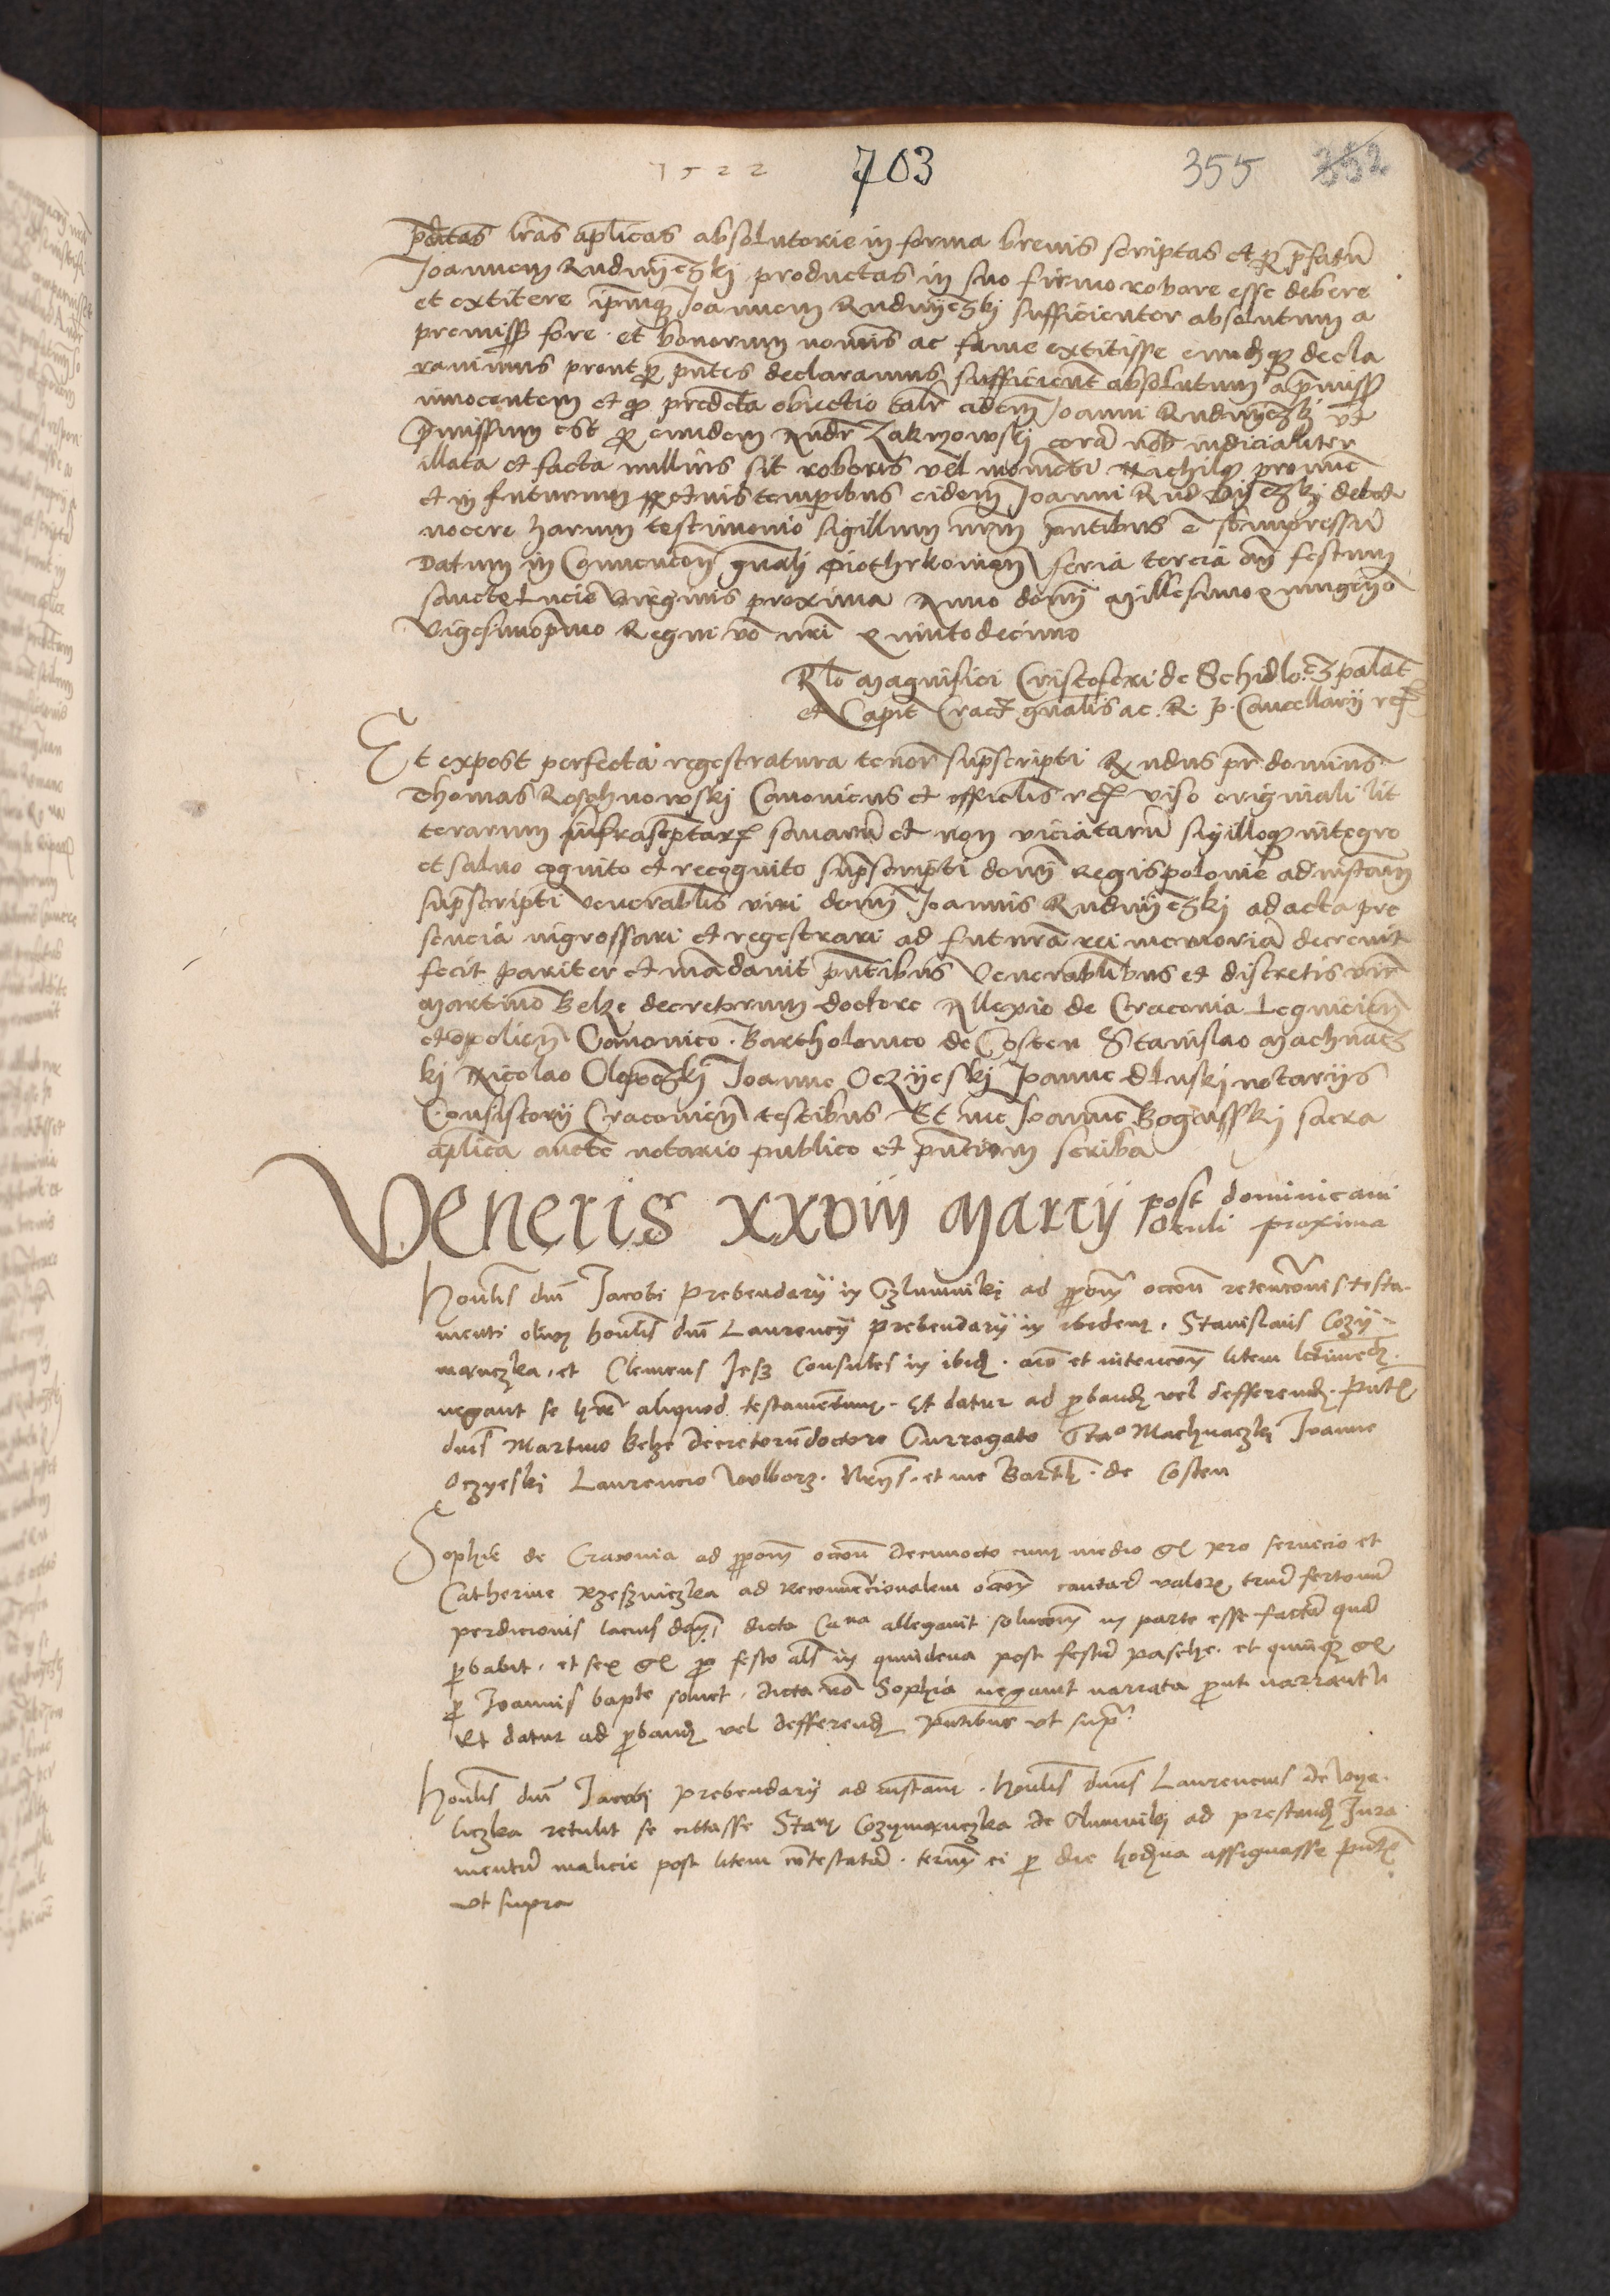 1522 703 355 352
pdictas lras aplicas absolutorie in forma brevis scriptas et per prefatu
Joannem Rudnyczski productas in suo firmo robore esse debere
et extitere ipmque Joannem Rudnyczski sufficienter absolutum a
premissis fore et bonorum nominis ac fame extitisse eundque decla
ravimus prout per pntes declaramus sufficient absolutum a pmissis
innocentem et quod predicta obiectio talr eidem Joanni Rudnyczski ut
pmissum est per eundem Andr Zakrzowski cora nob iudicialiter
illata et facta nullius sit roboris vel momenti nichilque pronuc
et in futurum ppetuis temporibus eidem Joanni Rudnyczski debet
nocere harum testimonio sigillum nrm pntibus e subimpressu
Datum in Convencon gnali Piothrkovien feria tercia an festum
sancte Lucie virginis proxima Anno domi Millesimo quingeno
vigesimoprimo Regni vo nri quintodecimo
Rlo magnifici Cristoferi de Schidlo.cz palat
et Capit Crac gnalis ac R. P. Cancellarij ref
Et expost perfecta regestratura tenor suprascripti Rndus pr dominus
Thomas Roschnowski Canonicus et officialis ref viso originali lit
terarum infrascptar sanaru et non viciataru sigilloque integro
et salvo cognito et recognito suprascripti domi Regis polonie ad instam
suprascripti venerablis viri domi Joannis Rudnyczski ad acta pre
sencia ingrossari et regestrari ad futura rei memoria decrevit
fecit pariter et madavit pntibus venerablibus et discretis vir
Martino Belze decretorum doctore Allexio de Cracovia Legnicien
et opolien Canonico Bartholomeo de Costen Stanislao Machnacz
ki Nicolao Joanne Oczyeski Joanne Dluski notarijs
Consistorij Cracovien testibus Et me Joanne Bogusski sacra
aplica aucte notario publico et pntium scriba
Veneris xxviij Marcij post dominicam
Oculi proxima
Honlis dni Jacobi prebendarij in Czlumiki ad pposm occon retenconis testa
menti olim honlis dni Laurencij prebendarij in ibidem . Stanislaus Cozy-
maruczka . et Clemens Jesz Consules in ibid . aio et intencom litem
negant se hre aliquod testamentum . Et datur ad pband vel defferend . Pnt
dnis Martino belze decretoru doctore Surrogato Stao Machnaczki Joanne
Oczyeski Laurencio Wolborz . Nrijs . et me Barth . de Costen
Sophie de Cracovia ad pposm occon decimocto cum medio gr pro servicio et
Catherine Rzeszniczka ad reconvencionalem occon cantari valor triu fertonu
perdicionis dicta Cana allegavit solucom in parte esse facta qua
pbabit . et sex gr pro festo als in quindena post festu pasche . et quinque gr
pro Joannis bapte solvet . dicta vo Sophia negavit narrata prout narrantur
Et datur ad pband vel defferend pntibus ut supra
Honlis dni Jacobi prebendarij ad instam . honlis dnus Laurencius de Vye
liczka retulit se citasse Stam Cozymaruczka de ad prestand Jura
mentu malicie post litem contestata . termm ei pro die hodierna assignasse pnt
ut supra